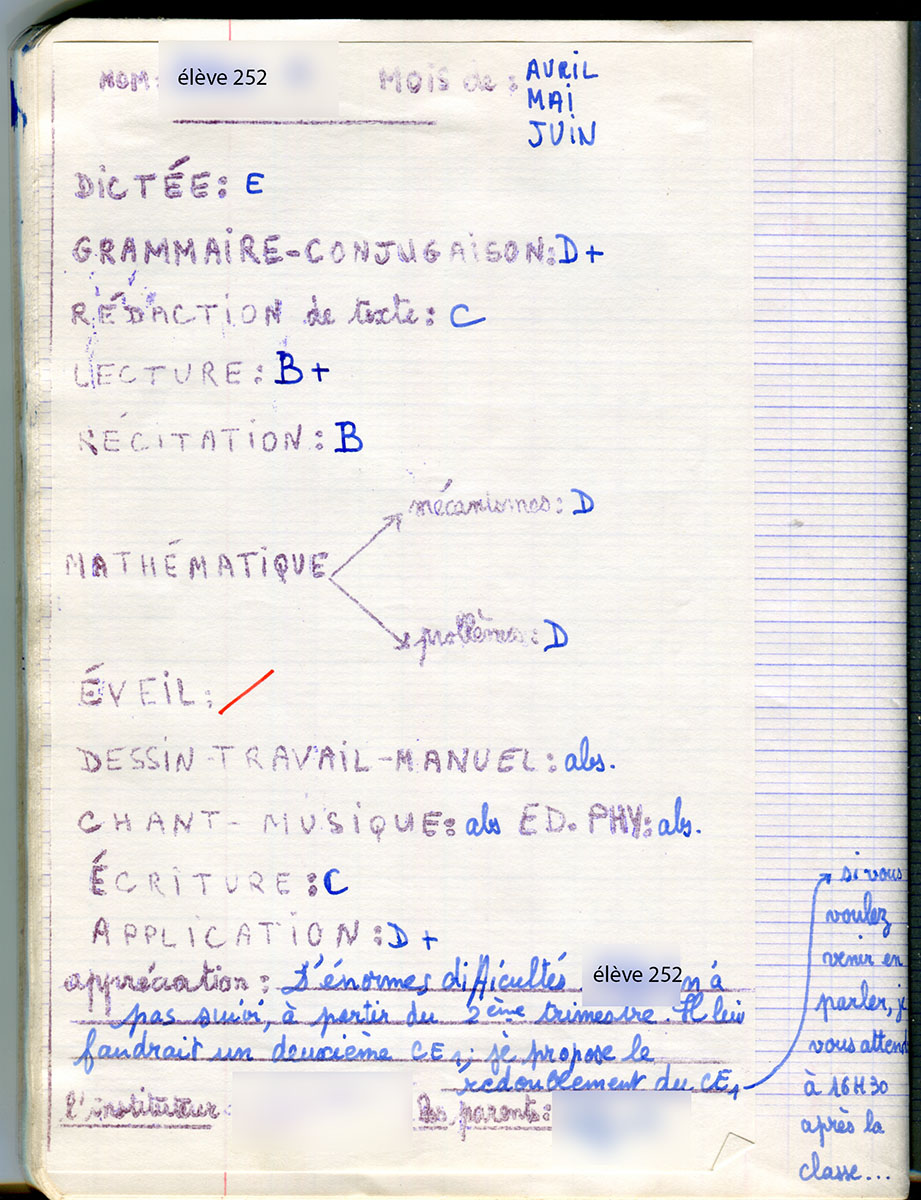 NOM: élève 252 MOIS de: AVRIL
MAI
JUIN
DICTÉE: E
GRAMMAIRE-CONJUGAISON: D+
RÉDACTION de texte: C
LECTURE: B+
RÉCITATION: B
mécanismes: D
MATHÉMATIQUE
problèmes: D
ÉVEIL: /
DESSIN-TRAVAIL-MANUEL: abs.
CHANT-MUSIQUE: abs ED. PHY: abs.
ÉCRITURE: C
APPLICATION: D+
appréciation: D'énormes difficultés. élève 252 n'a
pas suivi, à partir du 2ème trimestre. Il lui
faudrait un deuxième CE1; je propose le
redoublement du CE1
l'instituteur: Les parents:
si vous
voulez
venir en
parler, je
vous attend
à 16H30
après la
classe...